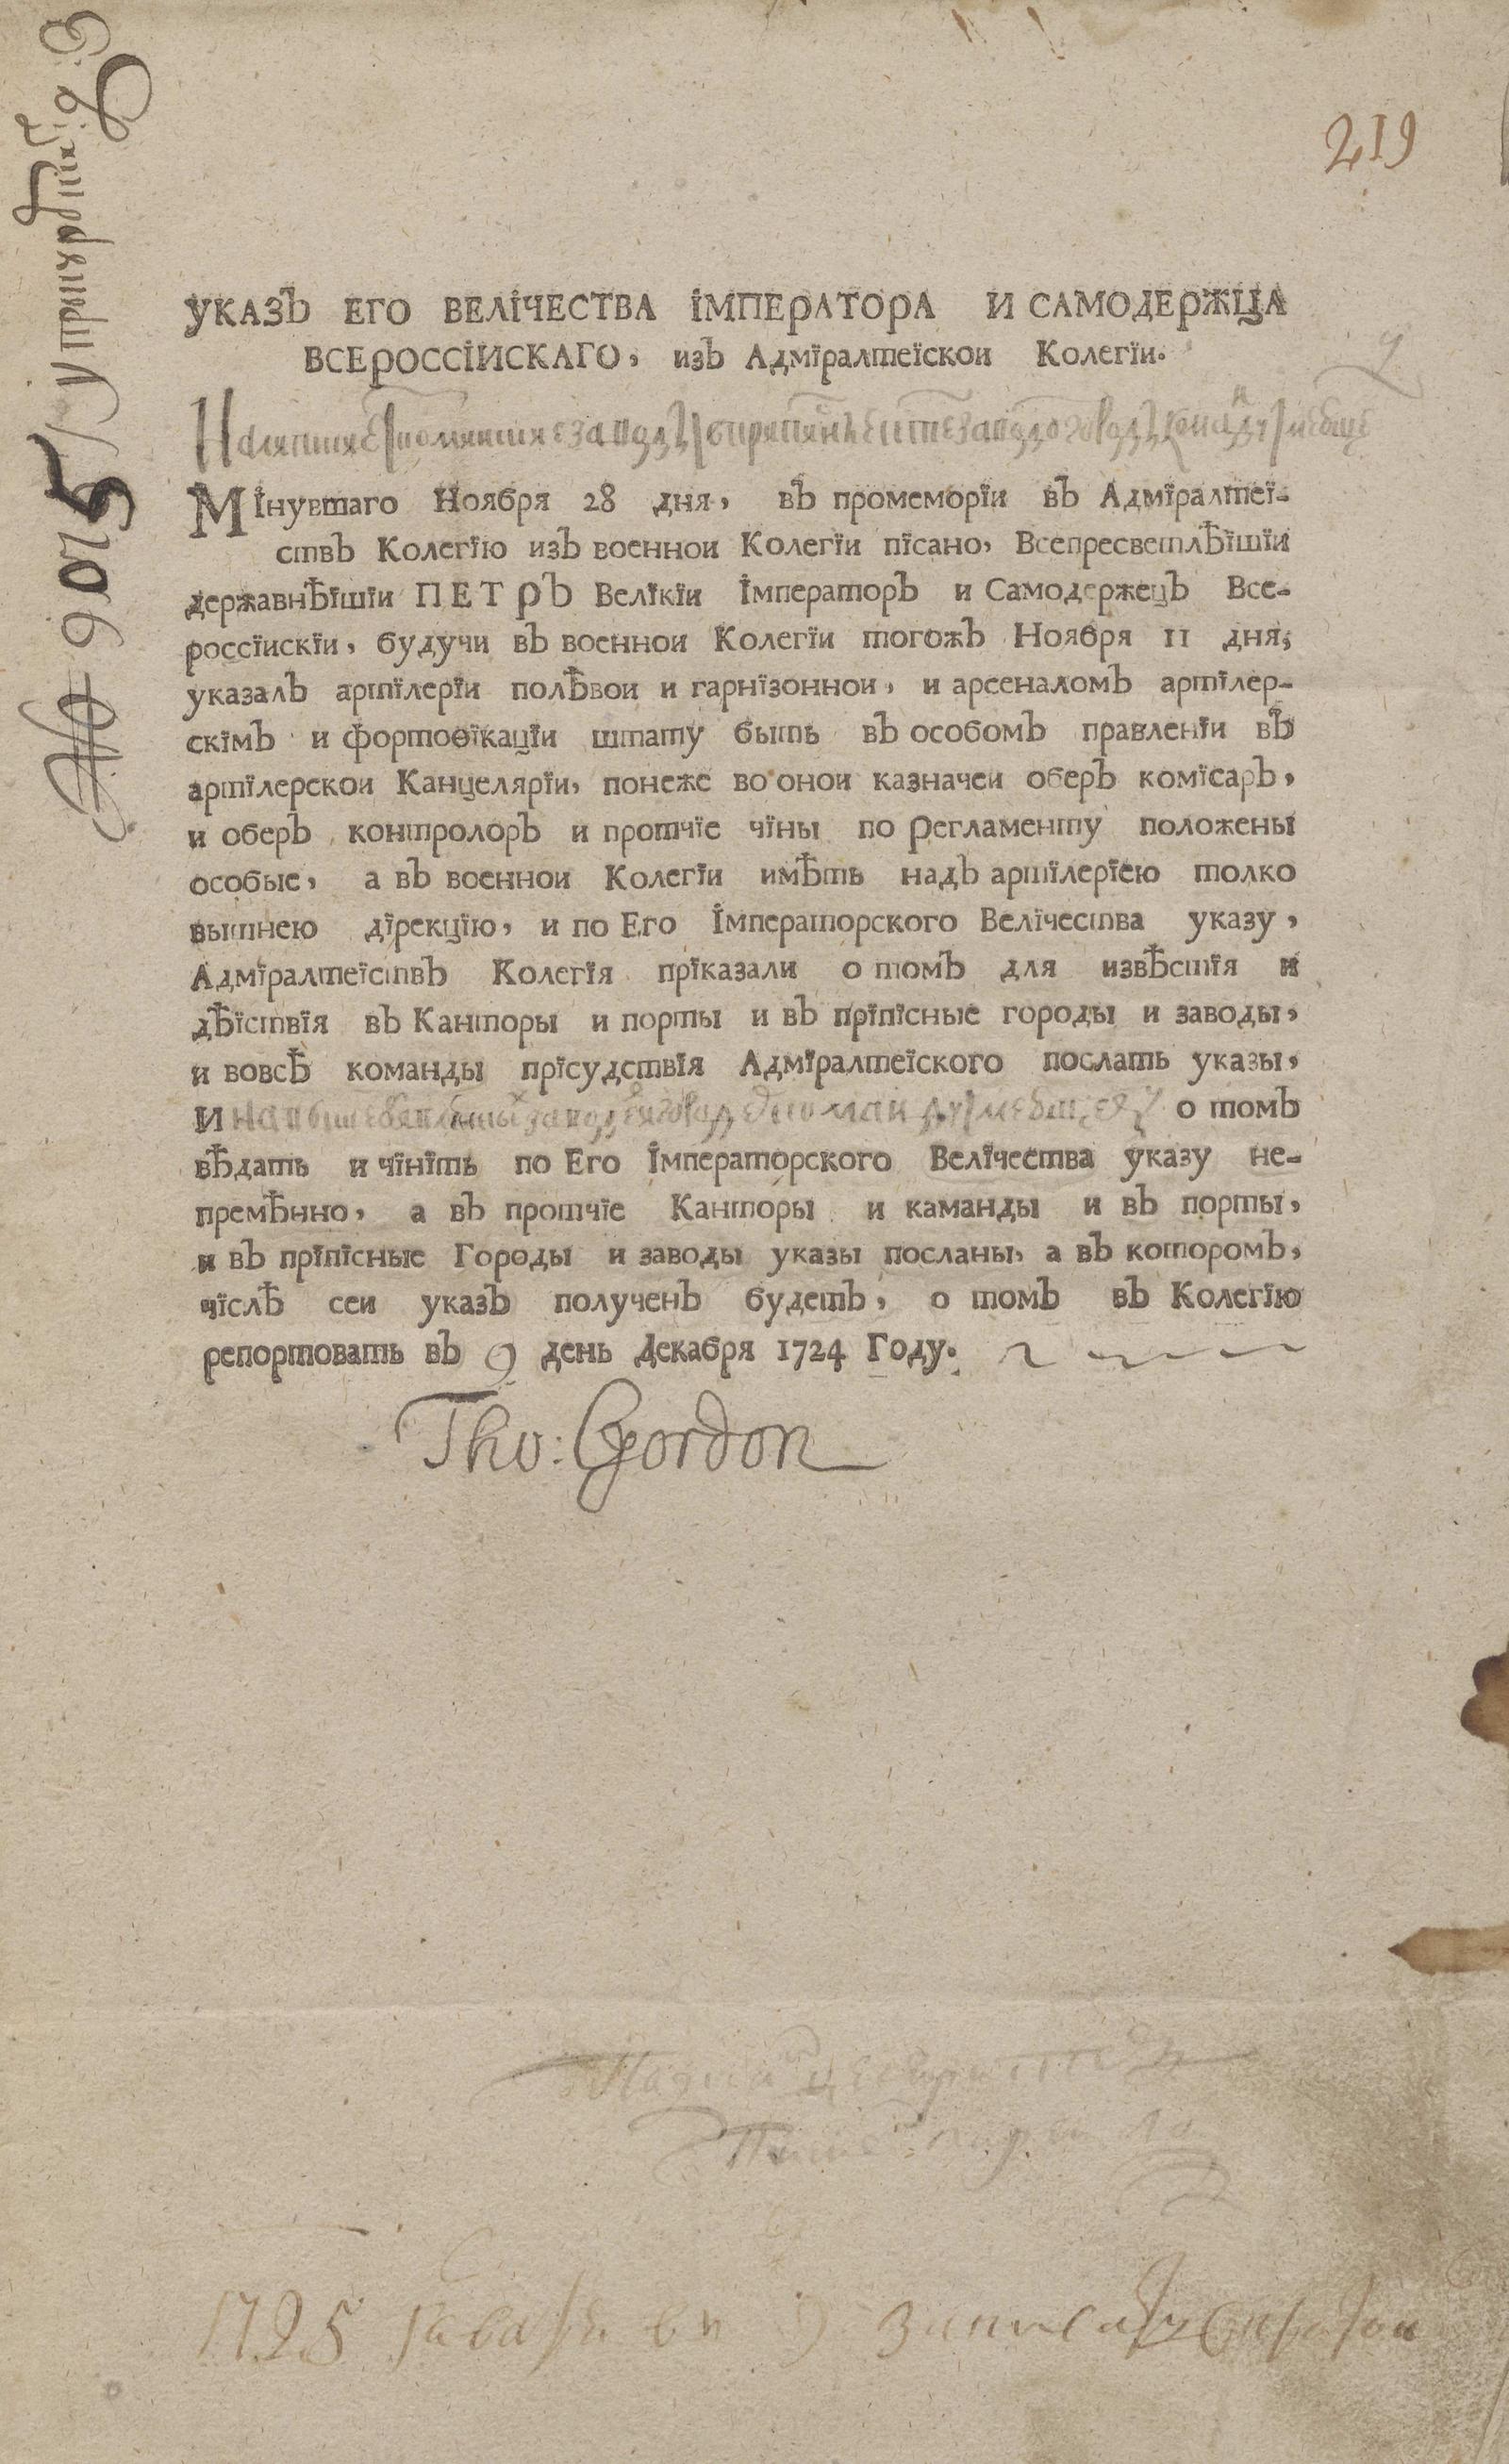 219
УКАЗЪ ЕГО ВЕЛІЧЕСТВА ІМПЕРАТОРА И САМОДЕРЖЦА
ВСЕРОССІИСКАГО, изЪ Адмїралтеїскои Колегїи.
Мінувшаго Ноября 28 дня, вЪ промеморїи вЪ Адмїралтеї-
ствЪ Колегїю изЪ военнои Колегїи пїсано, ВсепресветлѢїшїи
державнѢїшїи ПЕТРЪ Велїкїи ІмператорЪ и СамодержецЪ Все-
россїискїи, будучи вЪ военнои Колегїи тогожЪ Ноября 11 дня,
указалЪ артїлерїи полѢвои и гарнїзоннои, и арсеналомЪ артїлер-
скїмЪ и фортоѳїкацїи штату быть вЪ особомЪ правленїи вЪ
артїлерскои Канцелярїи, понеже во онои казначеи оберЪ комїсарЪ,
и оберЪ контролорЪ и протчїе чїны по Регламенту положены
особые, а вЪ военнои Колегїи имѢть надЪ артїлерїею толко
вышнею дїрекцїю, и по Его Імператорского Велїчества указу,
АдмїралтеїствЪ Колегїя прїказали о томЪ для извѢстїя и
дѢїствїя вЪ Канторы и порты и вЪ прїпїсные городы и заводы,
и вовсѢ команды прїсудствїя Адмїралтеїского послать указы,
И о томЪ
вѢдать и чїнїть по Его Імператорского Велїчества указу не-
премѢнно, а вЪ протчїе Канторы и каманды и вЪ порты,
и вЪ прїпїсные Городы и заводы указы посланы, а вЪ которомЪ,
чїслѢ сеи указЪ полученЪ будетЪ, о томЪ вЪ Колегїю
репортовать вЪ 9 день Декабря 1724 Году.
Tho: Gordon
1725